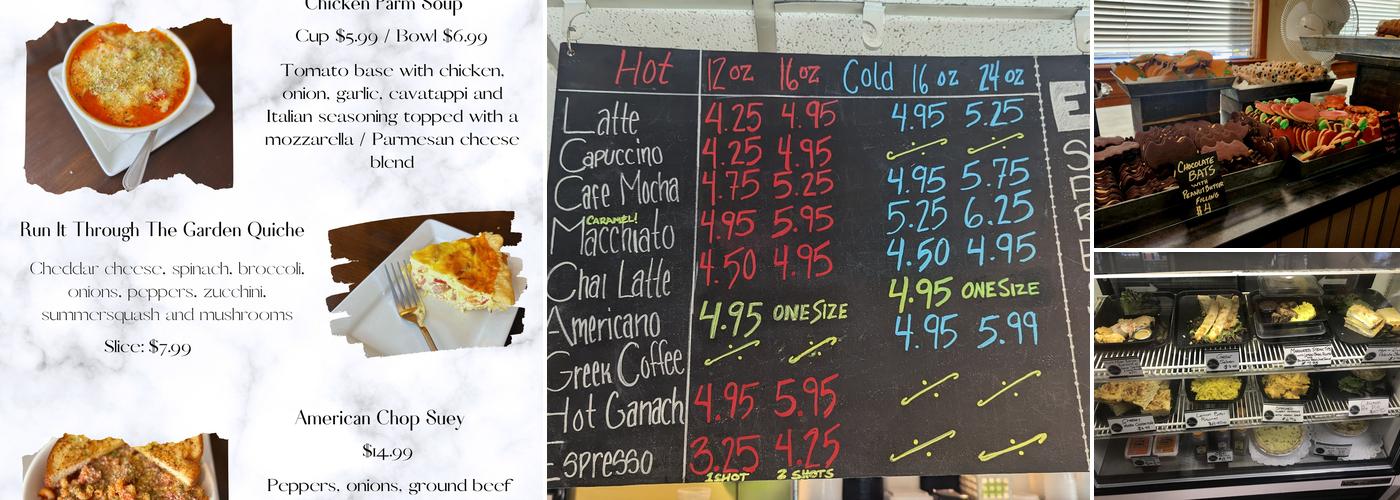 Chicken Parm Soup
Cup $5.99 / Bowl $6.99
Tomato base with chicken,
onion, garlic, cavatappi and
Italian seasoning topped with a
mozzarella / Parmesan cheese
blend
Run It Through The Garden Quiche
Cheddar cheese, spinach, broccoli,
onions, peppers, zucchini,
summersquash and mushrooms
Slice: $7.99
American Chop Suey
$14.99
Peppers, onions, ground beef
Hot 12 oz 16 oz Cold 16 oz 24 oz
Latte 4.25 4.95 4.95 5.25
Capuccino 4.25 4.95
Cafe Mocha 4.75 5.25 4.95 5.75
CARAMEL!
Macchiato 4.95 5.95 5.25 6.25
Chai Latte 4.50 4.95 4.50 4.95
Americano 4.95 ONE SIZE 4.95 ONE SIZE
Greek Coffee 4.95 5.99
Hot Ganach 4.95 5.95
Espresso 3.25 4.25
1 SHOT 2 SHOTS
CHOCOLATE
BATS
WITH
PEANUT BUTTER
FILLING
$4